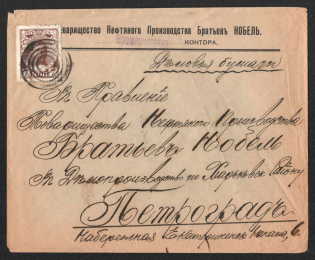 Товарищество Нефтяного Производства Братьевъ НОБЕЛЬ.
КОНТОРА.
Дѣловыя бумаги
Въ Правленіе
Товарищества Нефтяного Производства
Братьевъ Нобель
по Харьковск Району
Петроградъ
Набережная Екатерининск канала, 6